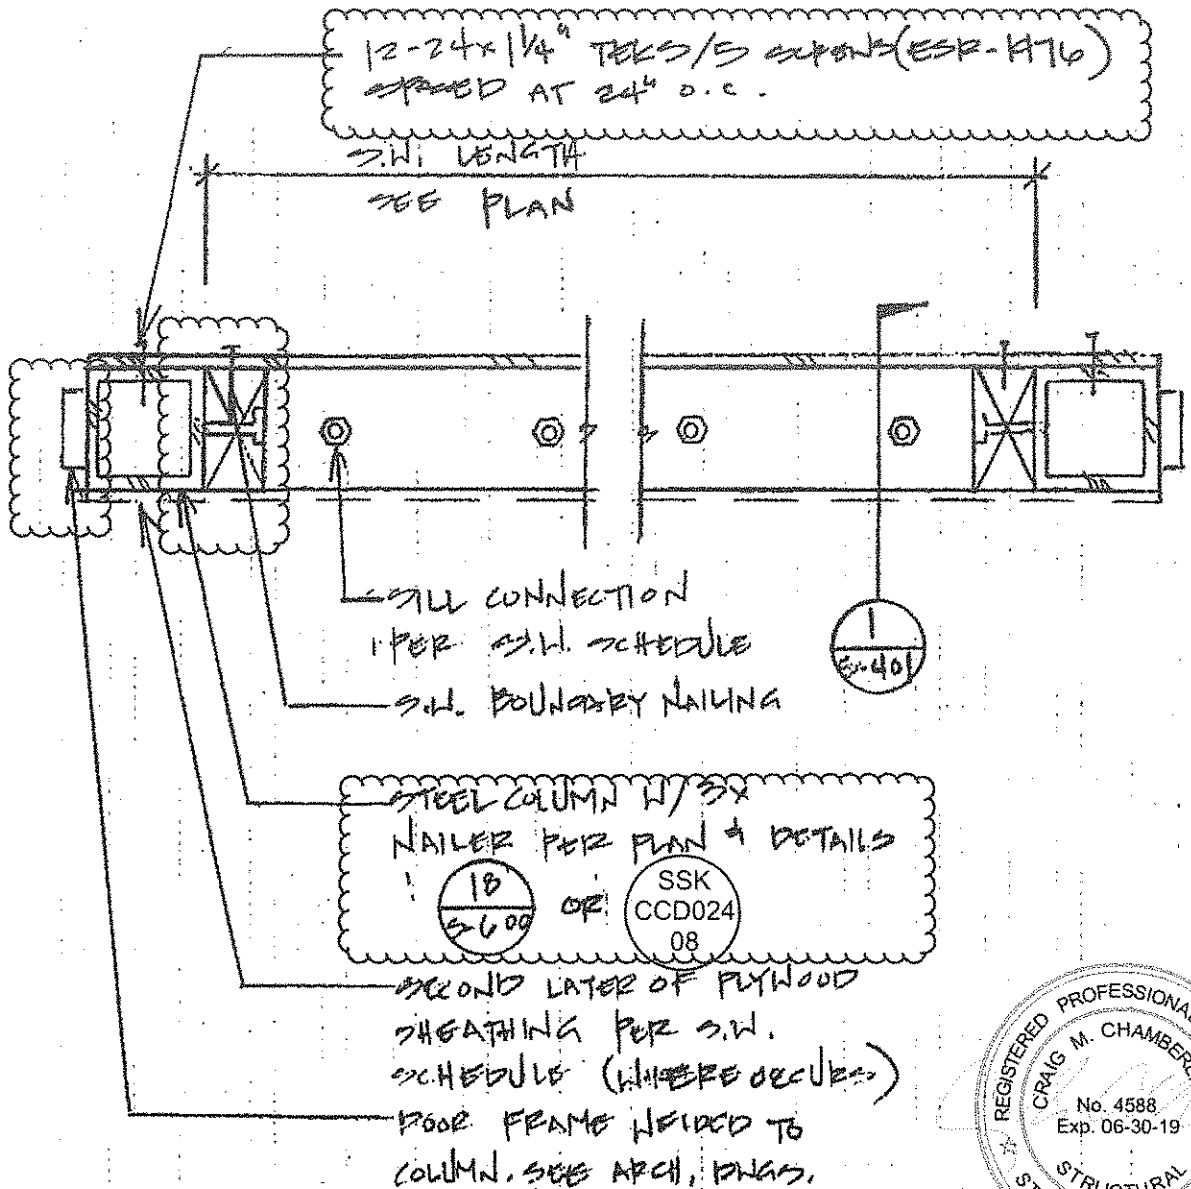 12-24x1 1/4" TEKS/5 SCREWS (ESR-1976)
SPACED AT 24" O.C.
S.W. LENGTH
SEE PLAN
SILL CONNECTION
PER S.W. SCHEDULE
1
S-401
S.W. BOUNDARY NAILING
STEEL COLUMN W/ 3X
NAILER PER PLAN & DETAILS
18
S-600
OR
SSK
CCD024
08
SECOND LAYER OF PLYWOOD
SHEATHING PER S.W.
SCHEDULE (WHERE OCCURS)
DOOR FRAME WELDED TO
COLUMN. SEE ARCH. DWGS.
REGISTERED PROFESSIONAL
CRAIG M.
No. 4588
Exp. 06-30-19
STRUCTURAL